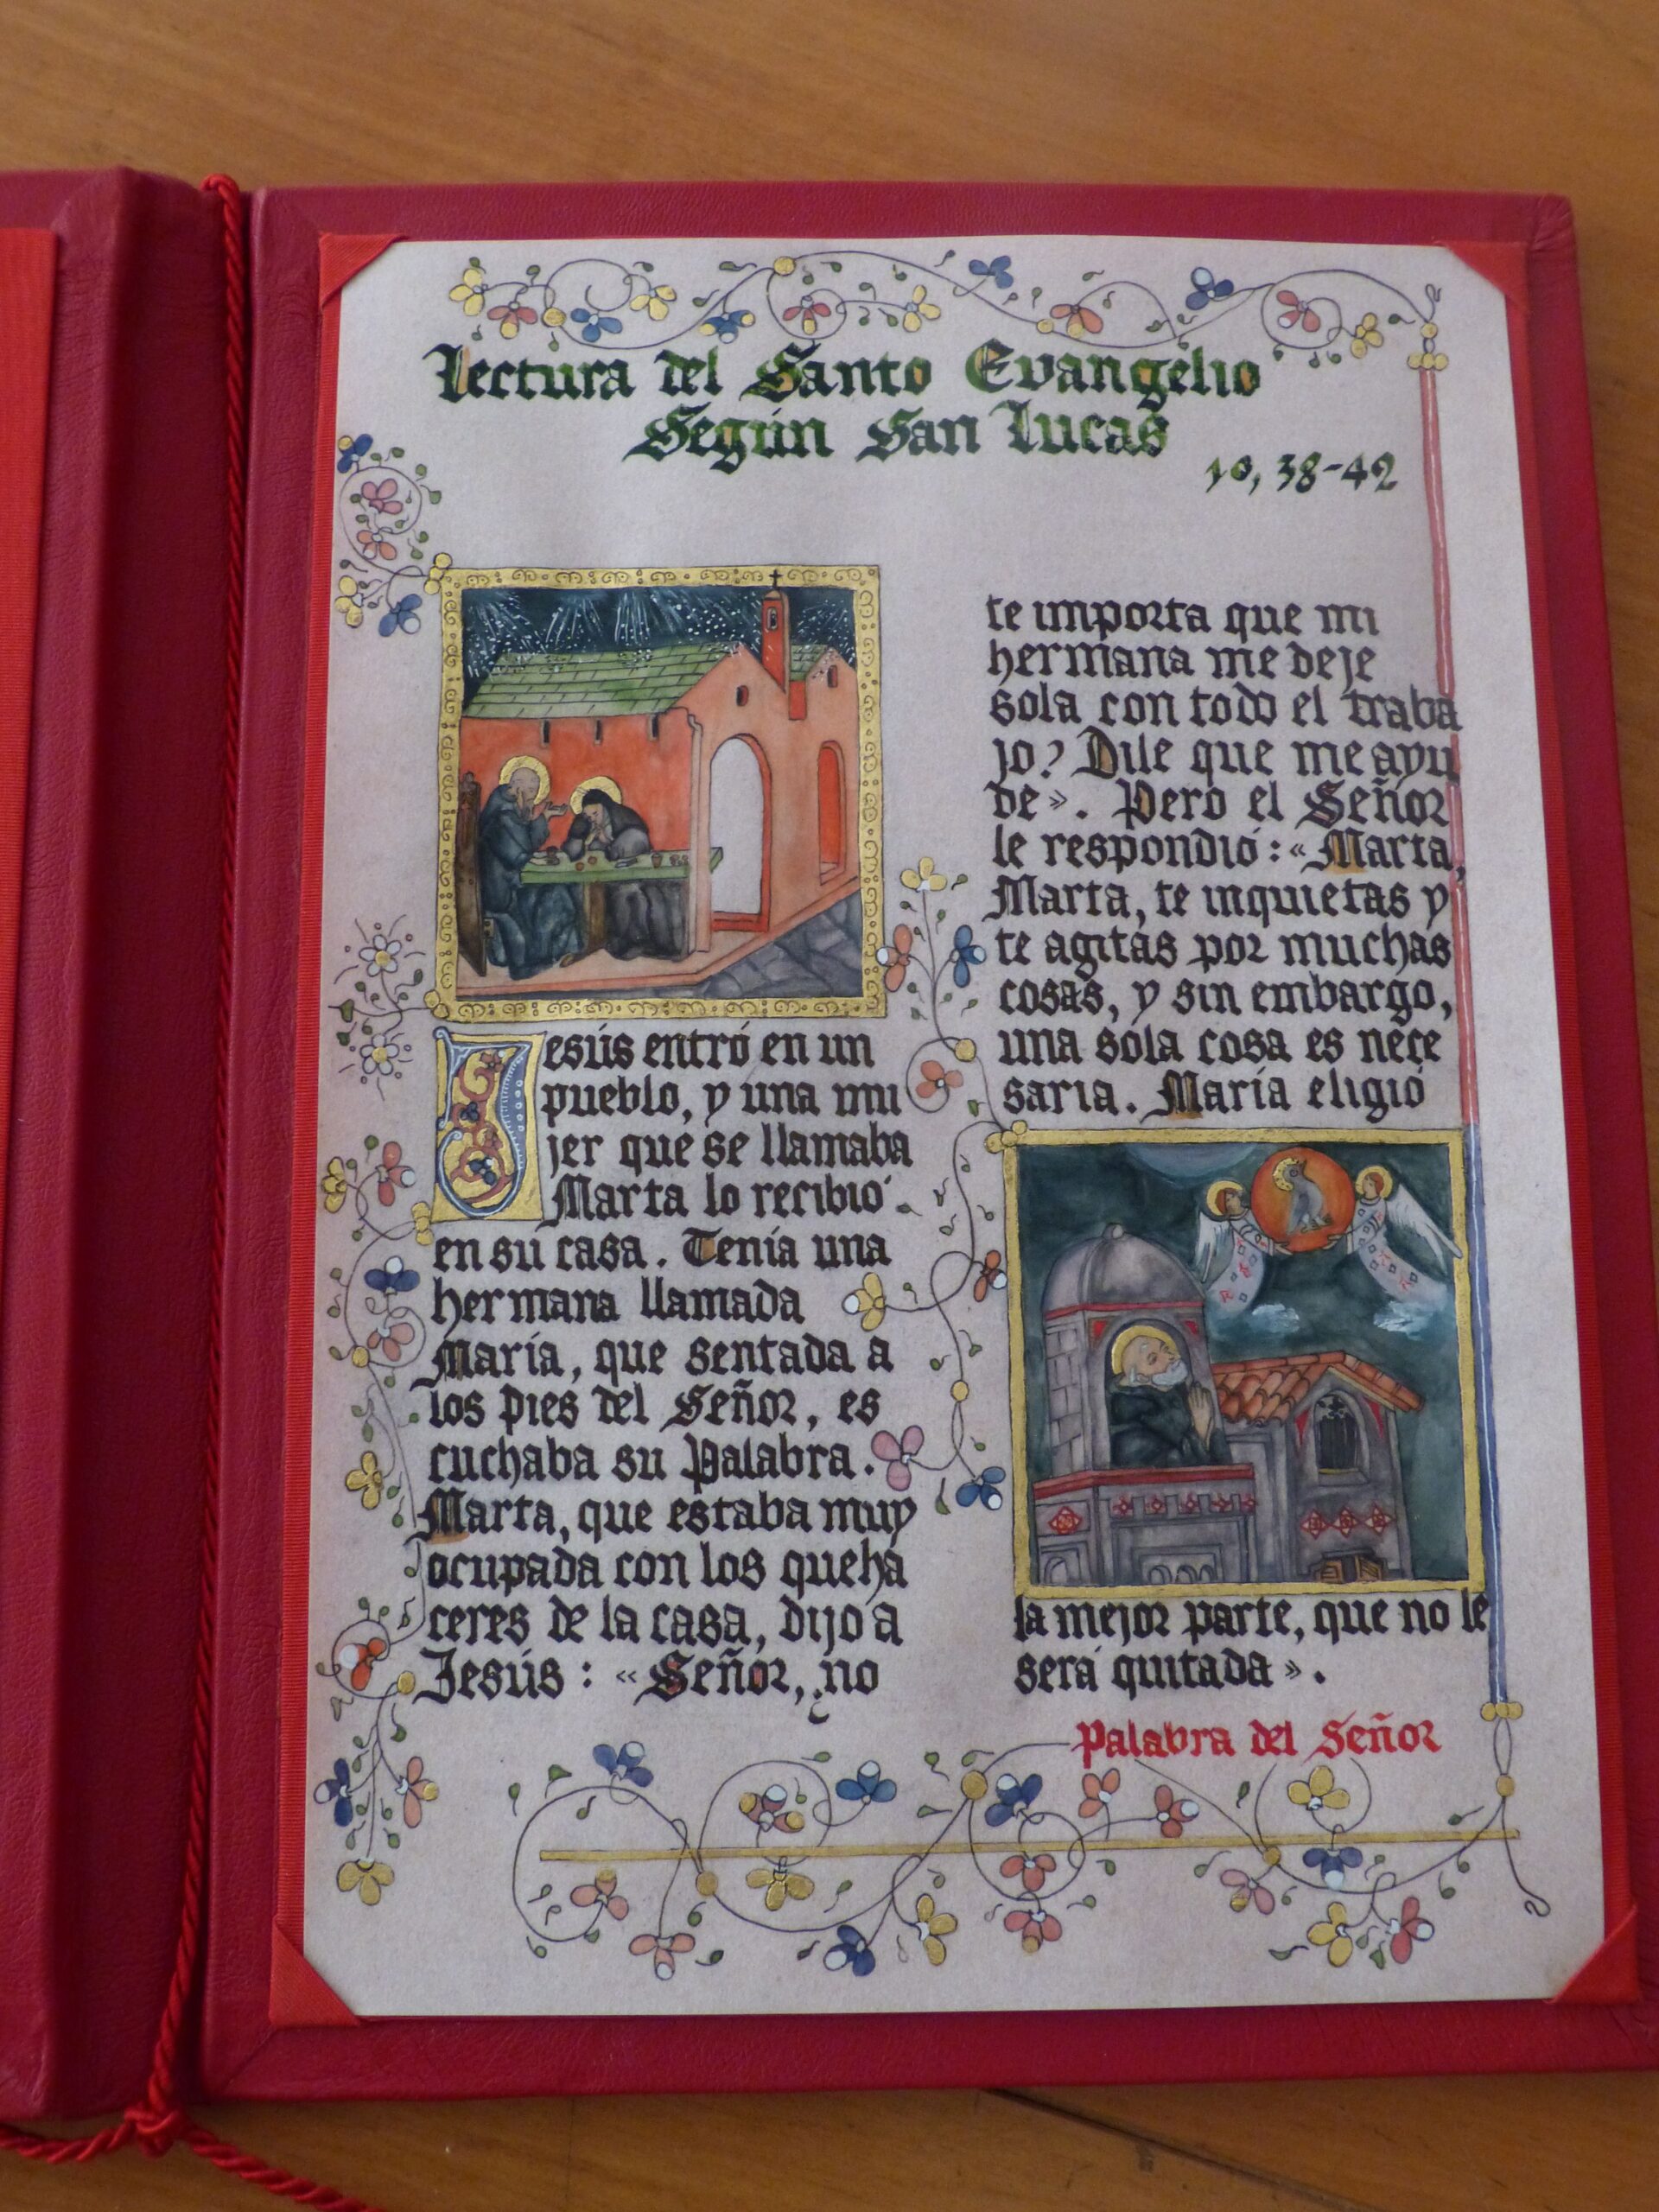 Lectura del Santo Evangelio
Según San Lucas
10, 38-42
Jesús entró en un
pueblo, y una mu
jer que se llamaba
Marta lo recibió
en su casa. Tenía una
hermana llamada
María, que sentada a
los pies del Señor, es
cuchaba su Palabra.
Marta, que estaba muy
ocupada con los queha
ceres de la casa, dijo a
Jesús: «Señor, ¿no
te importa que mi
hermana me deje
sola con todo el traba
jo? Dile que me ayu
de». Pero el Señor
le respondió: «Marta,
Marta, te inquietas y
te agitas por muchas
cosas, y sin embargo,
una sola cosa es nece
saria. María eligió
la mejor parte, que no le
será quitada».
Palabra del Señor